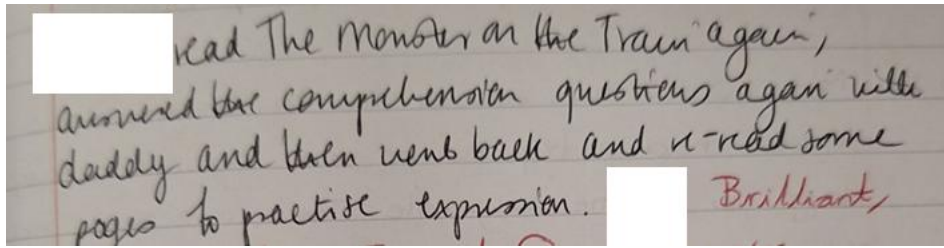 read The Monster on the Train again,
answered the comprehension questions again with
daddy and then went back and re-read some
pages to practise expression. Brilliant,